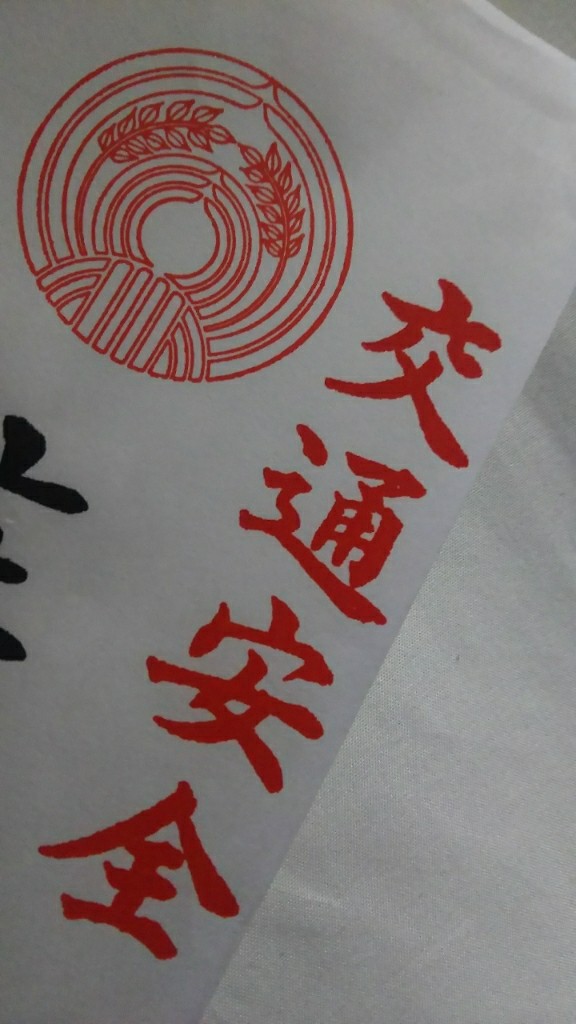 交通安全